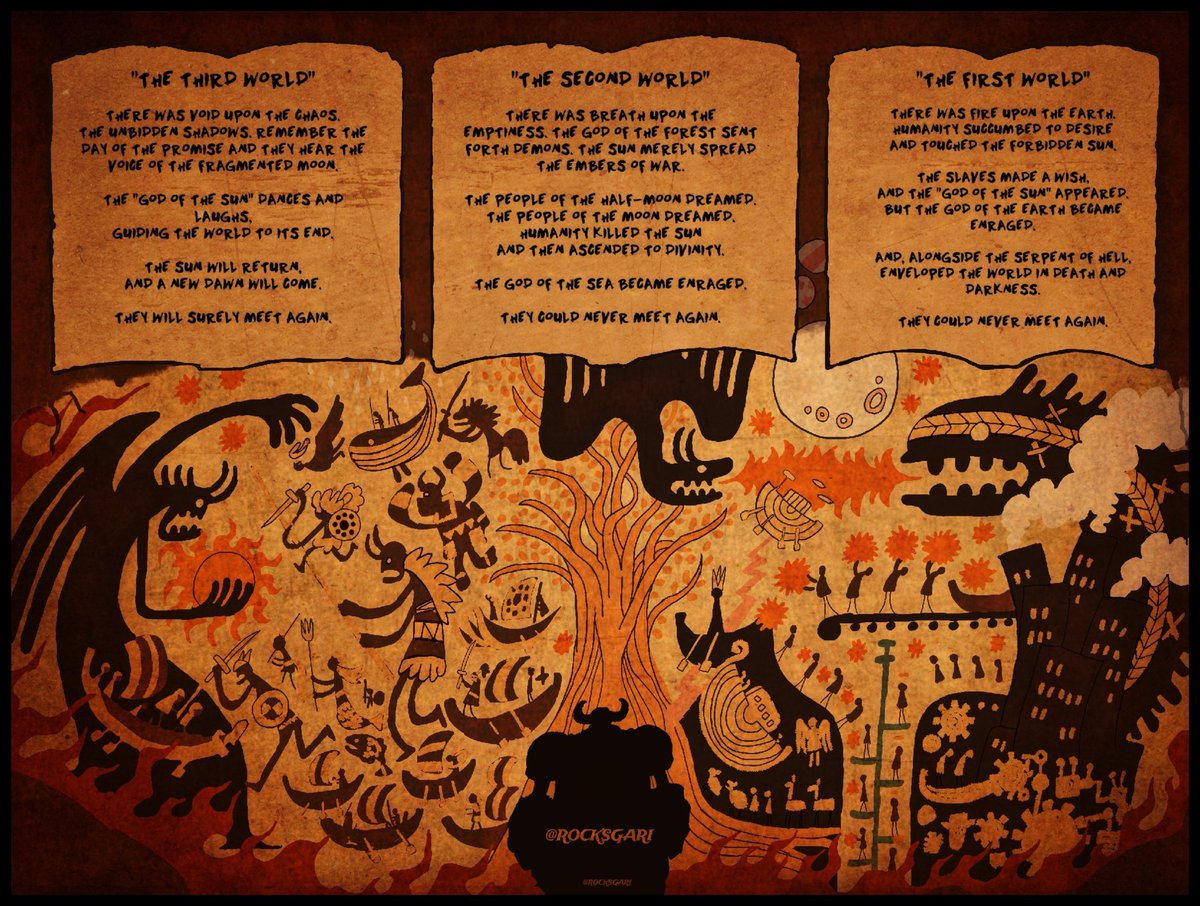 "THE THIRD WORLD"
THERE WAS VOID UPON THE CHAOS.
THE UNBIDDEN SHADOWS. REMEMBER THE
DAY OF THE PROMISE AND THEY HEAR THE
VOICE OF THE FRAGMENTED MOON.
THE "GOD OF THE SUN" DANCES AND
LAUGHS,
GUIDING THE WORLD TO ITS END.
THE SUN WILL RETURN,
AND A NEW DAWN WILL COME.
THEY WILL SURELY MEET AGAIN.
"THE SECOND WORLD"
THERE WAS BREATH UPON THE
EMPTINESS. THE GOD OF THE FOREST SENT
FORTH DEMONS. THE SUN MERELY SPREAD
THE EMBERS OF WAR.
THE PEOPLE OF THE HALF-MOON DREAMED.
THE PEOPLE OF THE MOON DREAMED.
HUMANITY KILLED THE SUN
AND THEN ASCENDED TO DIVINITY.
THE GOD OF THE SEA BECAME ENRAGED.
THEY COULD NEVER MEET AGAIN.
"THE FIRST WORLD"
THERE WAS FIRE UPON THE EARTH.
HUMANITY SUCCUMBED TO DESIRE
AND TOUCHED THE FORBIDDEN SUN.
THE SLAVES MADE A WISH,
AND THE "GOD OF THE SUN" APPEARED.
BUT THE GOD OF THE EARTH BECAME
ENRAGED.
AND, ALONGSIDE THE SERPENT OF HELL,
ENVELOPED THE WORLD IN DEATH AND
DARKNESS.
THEY COULD NEVER MEET AGAIN.
@ROCKSGARI
@ROCKSGARI